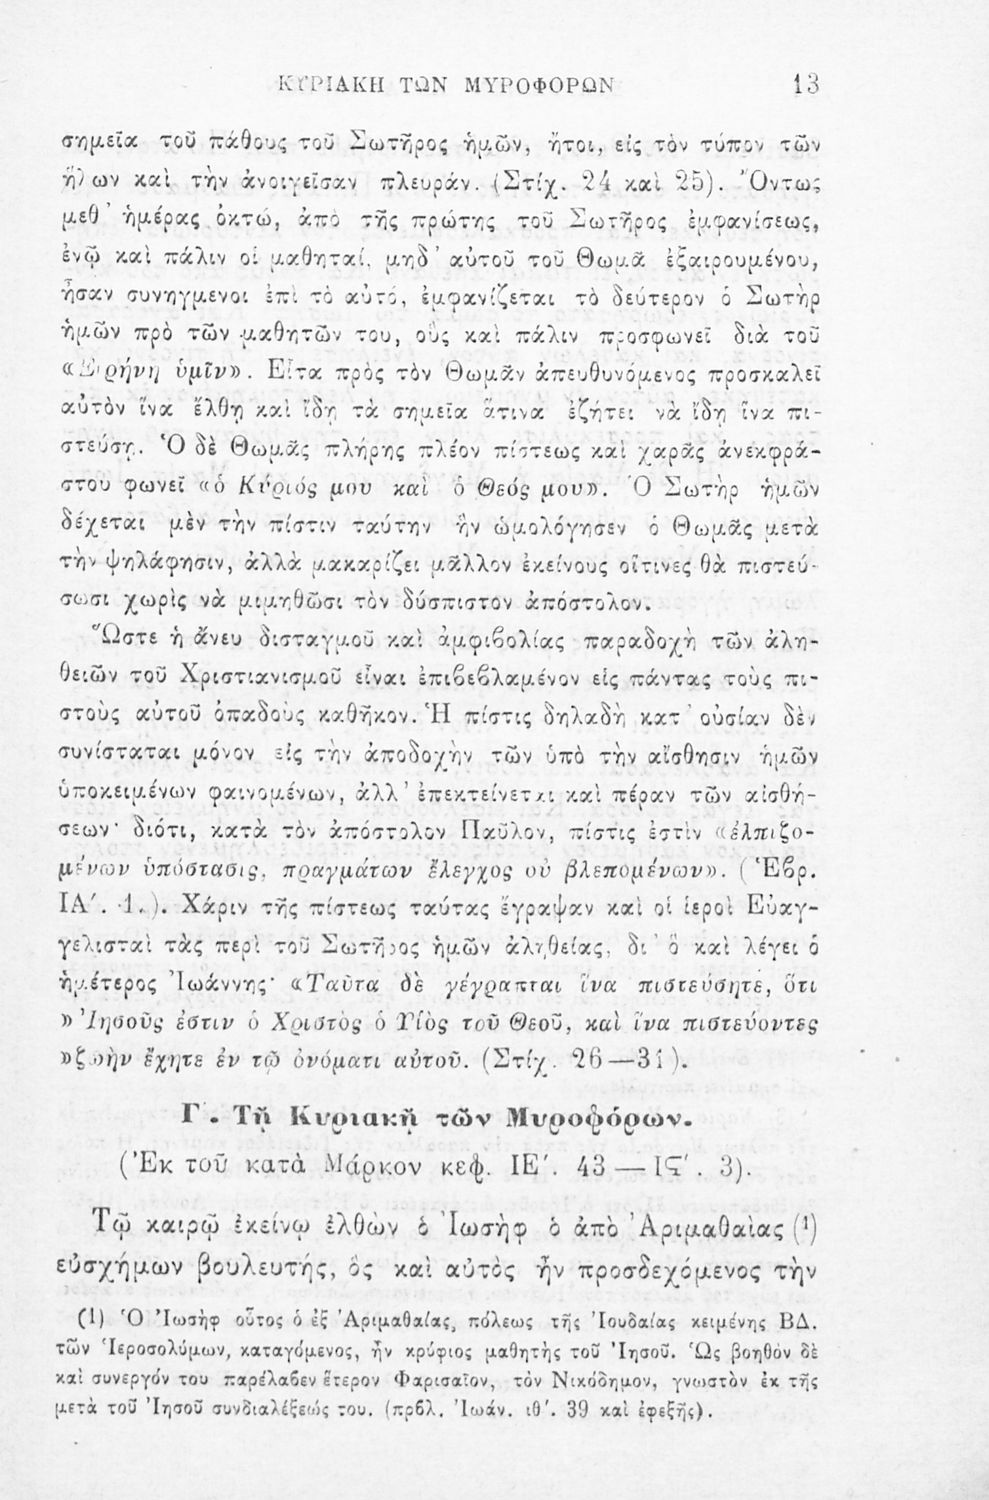 ΚΥΡΙΑΚΗ ΤΩΝ ΜΥΡΟΦΟΡΩΝ 13
σημεῖα τοῦ πάθους τοῦ Σωτῆρος ἡμῶν, ἤτοι, εἰς τὸν τύπον τῶν
ἥλων καὶ τὴν ἀνοιγεῖσαν πλευράν. (Στίχ. 24 καὶ 25). Ὄντως
μεθ’ ἡμέρας ὀκτώ, ἀπὸ τῆς πρώτης τοῦ Σωτῆρος ἐμφανίσεως,
ἐνῷ καὶ πάλιν οἱ μαθηταί, μηδ’ αὐτοῦ τοῦ Θωμᾶ ἐξαιρουμένου,
ἦσαν συνηγμενοι ἐπὶ τὸ αὐτό, ἐμφανίζεται τὸ δεύτερον ὁ Σωτὴρ
ἡμῶν πρὸ τῶν μαθητῶν του, οὓς καὶ πάλιν προσφωνεῖ διὰ τοῦ
«Εἰρήνη ὑμῖν». Εἶτα πρὸς τὸν Θωμᾶν ἀπευθυνόμενος προσκαλεῖ
αὐτὸν ἵνα ἔλθῃ καὶ ἴδῃ τὰ σημεῖα ἅτινα ἐζήτει νὰ ἴδῃ ἵνα πι-
στεύσῃ. Ὁ δὲ Θωμᾶς πλήρης πλέον πίστεως καὶ χαρᾶς ἀνεκφρά-
στου φωνεῖ «ὁ Κύριός μου καὶ ὁ Θεός μου». Ὁ Σωτὴρ ἡμῶν
δέχεται μὲν τὴν πίστιν ταύτην ἣν ὡμολόγησεν ὁ Θωμᾶς μετὰ
τὴν ψηλάφησιν, ἀλλὰ μακαρίζει μᾶλλον ἐκείνους οἵτινες θὰ πιστεύ-
σωσι χωρὶς νὰ μιμηθῶσι τὸν δύσπιστον ἀπόστολον.
Ὥστε ἡ ἄνευ δισταγμοῦ καὶ ἀμφιβολίας παραδοχὴ τῶν ἀλη-
θειῶν τοῦ Χριστιανισμοῦ εἶναι ἐπιβεβλαμένον εἰς πάντας τοὺς πι-
στοὺς αὐτοῦ ὀπαδοὺς καθῆκον. Ἡ πίστις δηλαδὴ κατ’ οὐσίαν δὲν
συνίσταται μόνον εἰς τὴν ἀποδοχὴν τῶν ὑπὸ τὴν αἴσθησιν ἡμῶν
ὑποκειμένων φαινομένων, ἀλλ’ ἐπεκτείνεται καὶ πέραν τῶν αἰσθή-
σεων· διότι, κατὰ τὸν ἀπόστολον Παῦλον, πίστις ἐστὶν «ἐλπιζο-
μένων ὑπόστασις, πραγμάτων ἔλεγχος οὐ βλεπομένων». (Ἑβρ.
ΙΑ΄. 1.). Χάριν τῆς πίστεως ταύτας ἔγραψαν καὶ οἱ ἱεροὶ Εὐαγ-
γελισταὶ τὰς περὶ τοῦ Σωτῆρος ἡμῶν ἀληθείας, δι’ ὃ καὶ λέγει ὁ
ἡμέτερος Ἰωάννης· «Ταῦτα δὲ γέγραπται ἵνα πιστεύσητε, ὅτι
»Ἰησοῦς ἐστιν ὁ Χριστὸς ὁ Υἱὸς τοῦ Θεοῦ, καὶ ἵνα πιστεύοντες
»ζωὴν ἔχητε ἐν τῷ ὀνόματι αὐτοῦ. (Στίχ. 26—31).
Γ΄. Τῇ Κυριακῇ τῶν Μυροφόρων.
(Ἐκ τοῦ κατὰ Μάρκον κεφ. ΙΕ΄. 43 — ΙϚ΄. 3).
Τῷ καιρῷ ἐκείνῳ ἐλθὼν ὁ Ἰωσὴφ ὁ ἀπὸ Ἀριμαθαίας (¹)
εὐσχήμων βουλευτής, ὃς καὶ αὐτὸς ἦν προσδεχόμενος τὴν
(1) Ὁ Ἰωσὴφ οὗτος ὁ ἐξ Ἀριμαθαίας, πόλεως τῆς Ἰουδαίας κειμένης ΒΔ.
τῶν Ἱεροσολύμων, καταγόμενος, ἦν κρύφιος μαθητὴς τοῦ Ἰησοῦ. Ὡς βοηθὸν δὲ
καὶ συνεργόν του παρέλαβεν ἕτερον Φαρισαῖον, τὸν Νικόδημον, γνωστὸν ἐκ τῆς
μετὰ τοῦ Ἰησοῦ συνδιαλέξεώς του. (πρβλ. Ἰωάν. ιθ΄. 39 καὶ ἐφεξῆς).